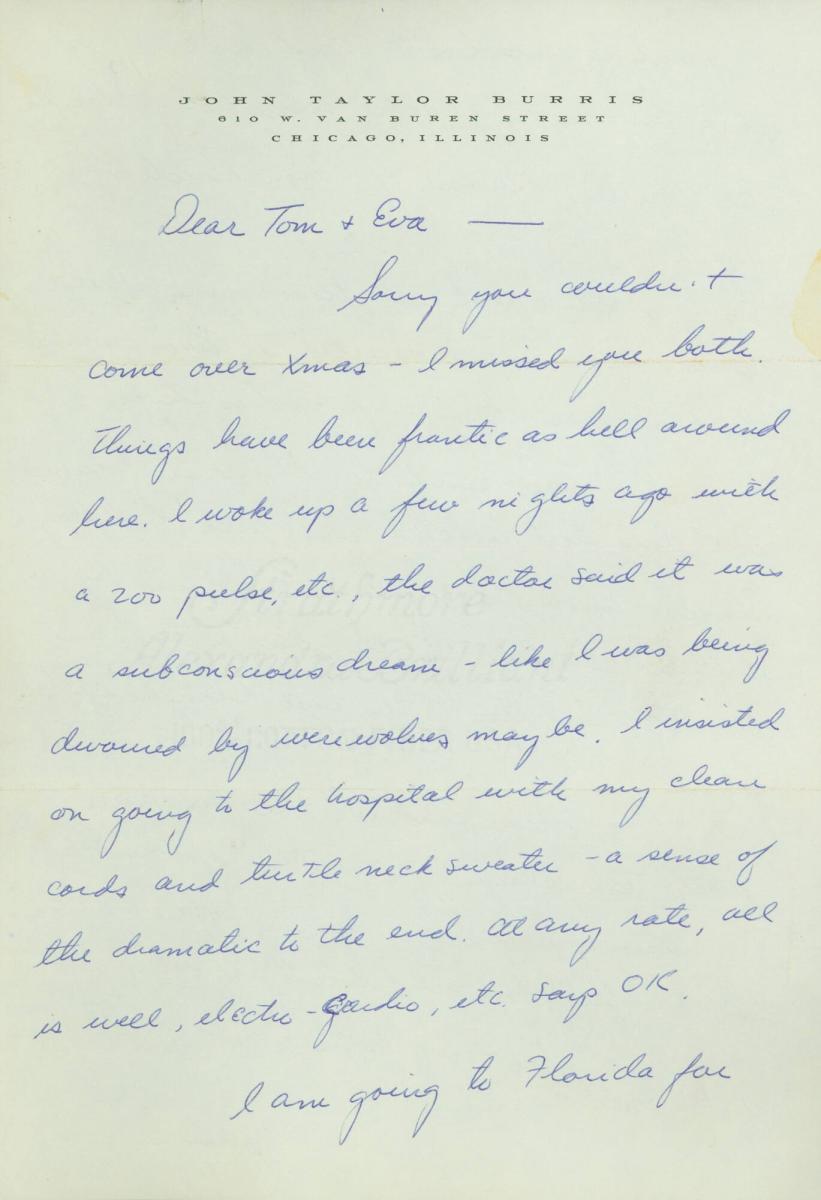 JOHN TAYLOR BURRIS
610 W. VAN BUREN STREET
CHICAGO, ILLINOIS
Dear Tom + Eva —
Sorry you couldn't
come over Xmas - I missed you both.
Things have been frantic as hell around
here. I woke up a few nights ago with
a 200 pulse, etc., the doctor said it was
a subconscious dream - like I was being
devoured by werewolves maybe. I insisted
on going to the hospital with my clean
cords and turtle neck sweater - a sense of
the dramatic to the end. At any rate, all
is well, electro-cardio, etc. says OK.
I am going to Florida for
Strathmore